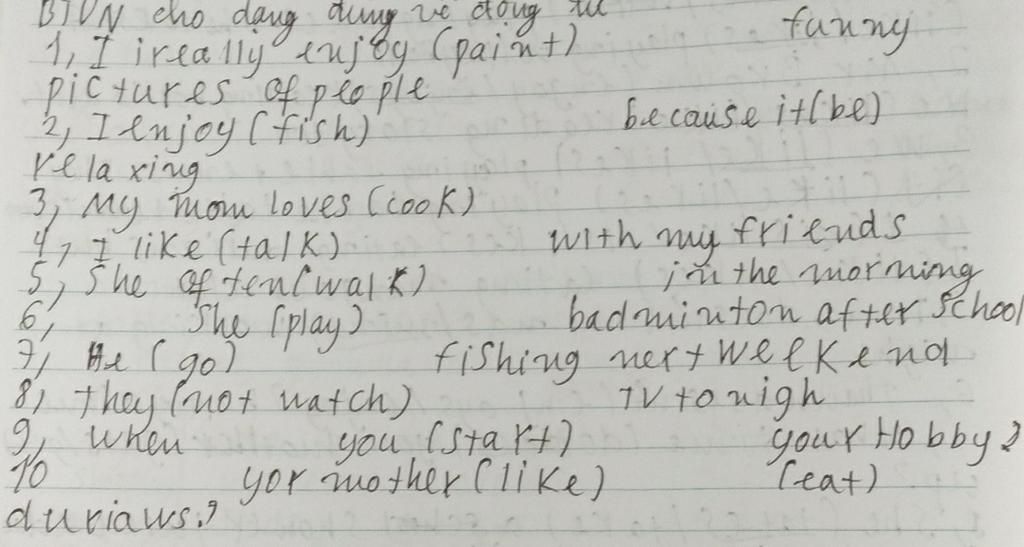 BTVN cho dạng đúng về động từ
1, I really enjoy (paint) funny
pictures of people
2, I enjoy (fish) because it (be)
relaxing
3, My mom loves (cook)
4, I like (talk) with my friends
5, She often (walk) in the morning
6, She (play) badminton after School
7, He (go) fishing next weekend
8, they (not watch) TV tonigh
9, When you (start) your Hobby?
10 yor mother (like) (eat)
duriaws?